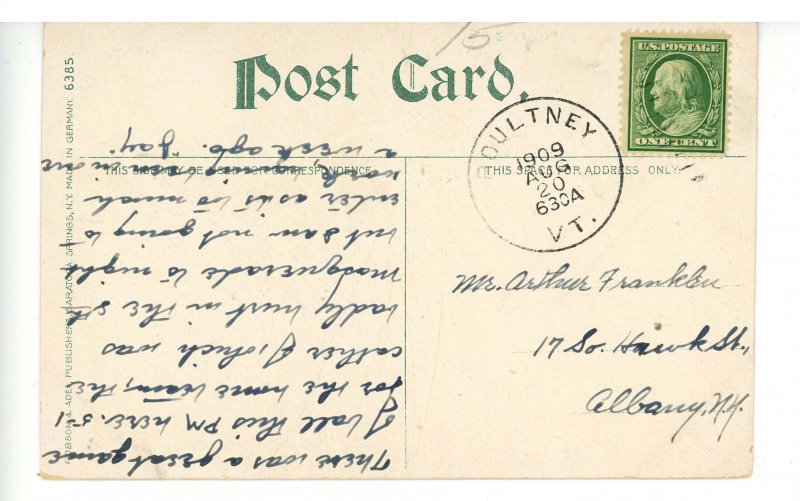 15
Post Card.
U.S. POSTAGE
ONE CENT
POULTNEY
1909
AUG
20
630A
VT.
THIS SIDE MAY BE USED FOR CORRESPONDENCE.
THIS SPACE FOR ADDRESS ONLY.
Mr. Arthur Franklin
17 So. Hawk St.,
Albany, N.Y.
There was a great game
of ball this PM here. 5-1
for the home team, the
catcher of which was
badly hurt in the 5th
Masquerade to night
but I aw not going to
enter as its too much
work,
a week ago. "Jay"
ROBSON & ADEE, PUBLISHERS, SARATOGA SPRINGS, N.Y. MADE IN GERMANY. 6385.